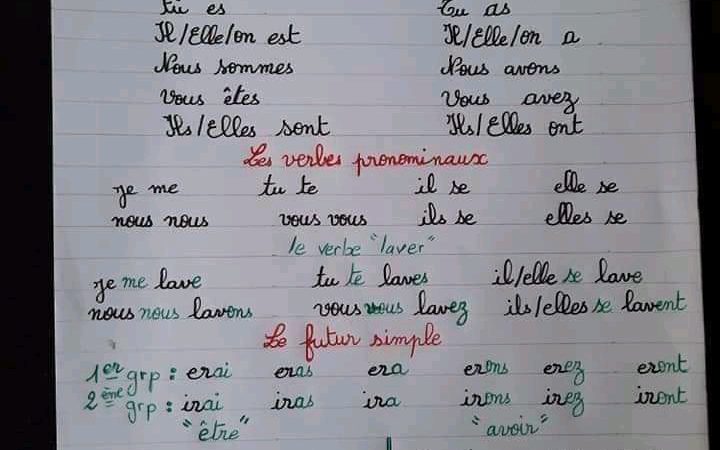 tu es Tu as
Il/Elle/on est Il/Elle/on a
Nous sommes Nous avons
Vous êtes Vous avez
Ils/Elles sont Ils/Elles ont
Les verbes pronominaux
je me tu te il se elle se
nous nous vous vous ils se elles se
le verbe "laver"
je me lave tu te laves il/elle se lave
nous nous lavons vous vous lavez ils/elles se lavent
Le futur simple
1er grp : erai eras era erons erez eront
2ème grp : irai iras ira irons irez iront
"être" "avoir"